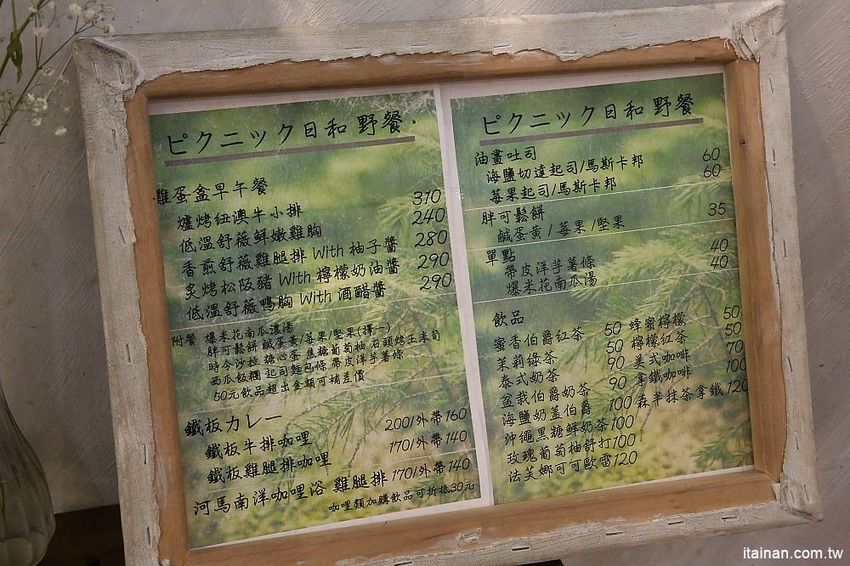 ピクニック日和野餐
雞蛋盒早午餐
爐烤紐澳牛小排 310
低溫舒薇鮮嫩雞胸 240
香煎舒薇雞腿排 With 柚子醬 280
炙烤松阪豬 With 檸檬奶油醬 290
低溫舒薇鴨胸 With 酒醋醬 290
附餐 爆米花南瓜濃湯
胖可鬆餅 鹹蛋黃/莓果/堅果(擇一)
時令沙拉 糖心蛋 焦糖葡萄柚 石頭烤玉米筍
西瓜飯糰 起司麵包條 帶皮洋芋薯條
50元飲品超出金額可補差價
鐵板カレー
鐵板牛排咖哩 200/外帶160
鐵板雞腿排咖哩 170/外帶140
河馬南洋咖哩浴 雞腿排 170/外帶140
咖哩類加購飲品可折抵30元
ピクニック日和野餐
油畫吐司
海鹽切達起司/馬斯卡邦 60
莓果起司/馬斯卡邦 60
胖可鬆餅
鹹蛋黃/莓果/堅果 35
單點
帶皮洋芋薯條 40
爆米花南瓜湯 40
飲品
蜜香伯爵紅茶 50 蜂蜜檸檬 50
茉莉綠茶 50 檸檬紅茶 50
泰式奶茶 90 美式咖啡 70
盆栽伯爵奶茶 90 拿鐵咖啡 100
海鹽奶蓋伯爵 100 森半抹茶拿鐵 120
沖繩黑糖鮮奶茶 100
玫瑰葡萄柚舒打 100
法芙娜可可歐蕾 120
itainan.com.tw